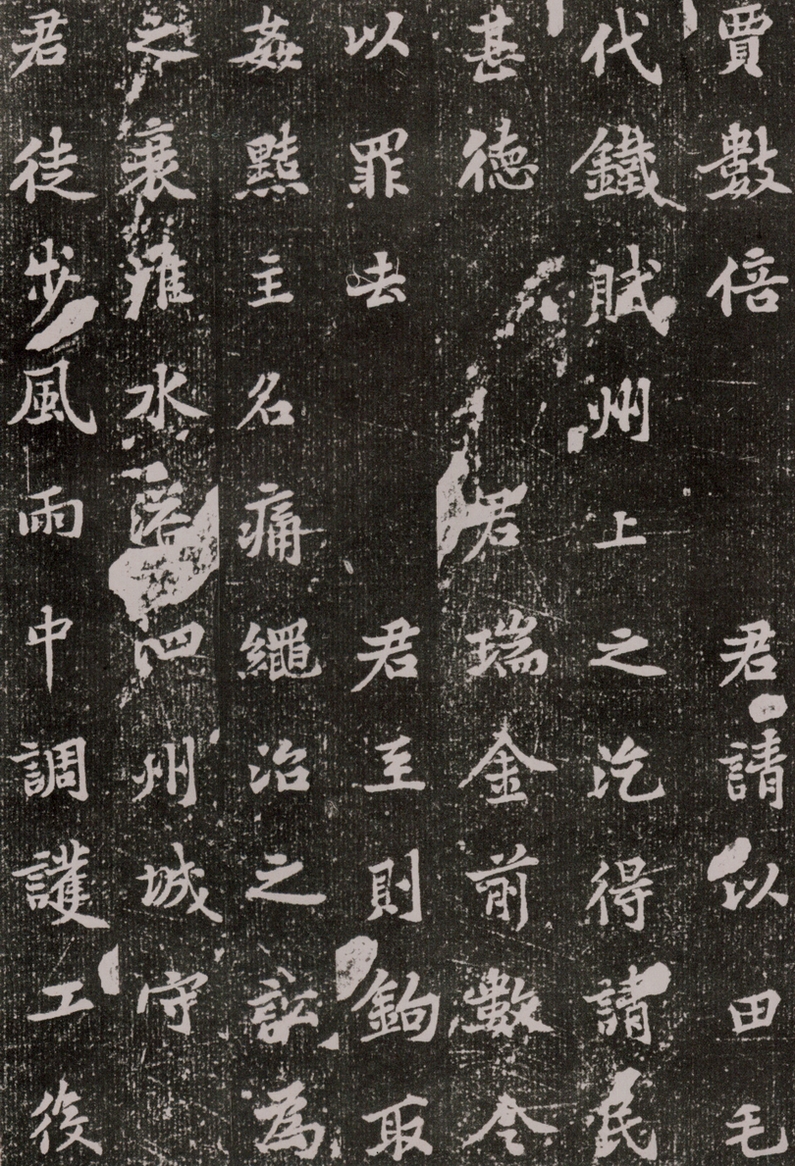 賈數倍　君請以田毛
代鐵賦州上之汔得請民
甚德　君瑞金前數令
以罪去　君至則鉤取
姦黠主名痛繩治之訟為
之衰淮水泗州城守
君徒步風雨中調護工役